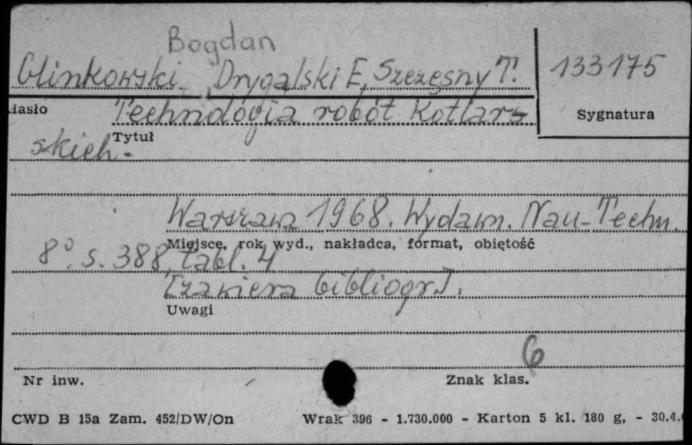 Bogdan
Glinkowski. Drygalski E, Szczęsny T.
133175
Hasło
Technologia robót kotlarz-
Sygnatura
Tytuł
skich.
Warszawa 1968. Wydawn. Nau-Techn.
Miejsce, rok wyd., nakładca, format, objętość
8°. s. 388, tabl. 4
[zawiera bibliogr].
Uwagi
6
Nr inw.
Znak klas.
CWD B 15a Zam. 452/DW/On
Wrak 396 - 1.730.000 - Karton 5 kl. 180 g, - 30.4.